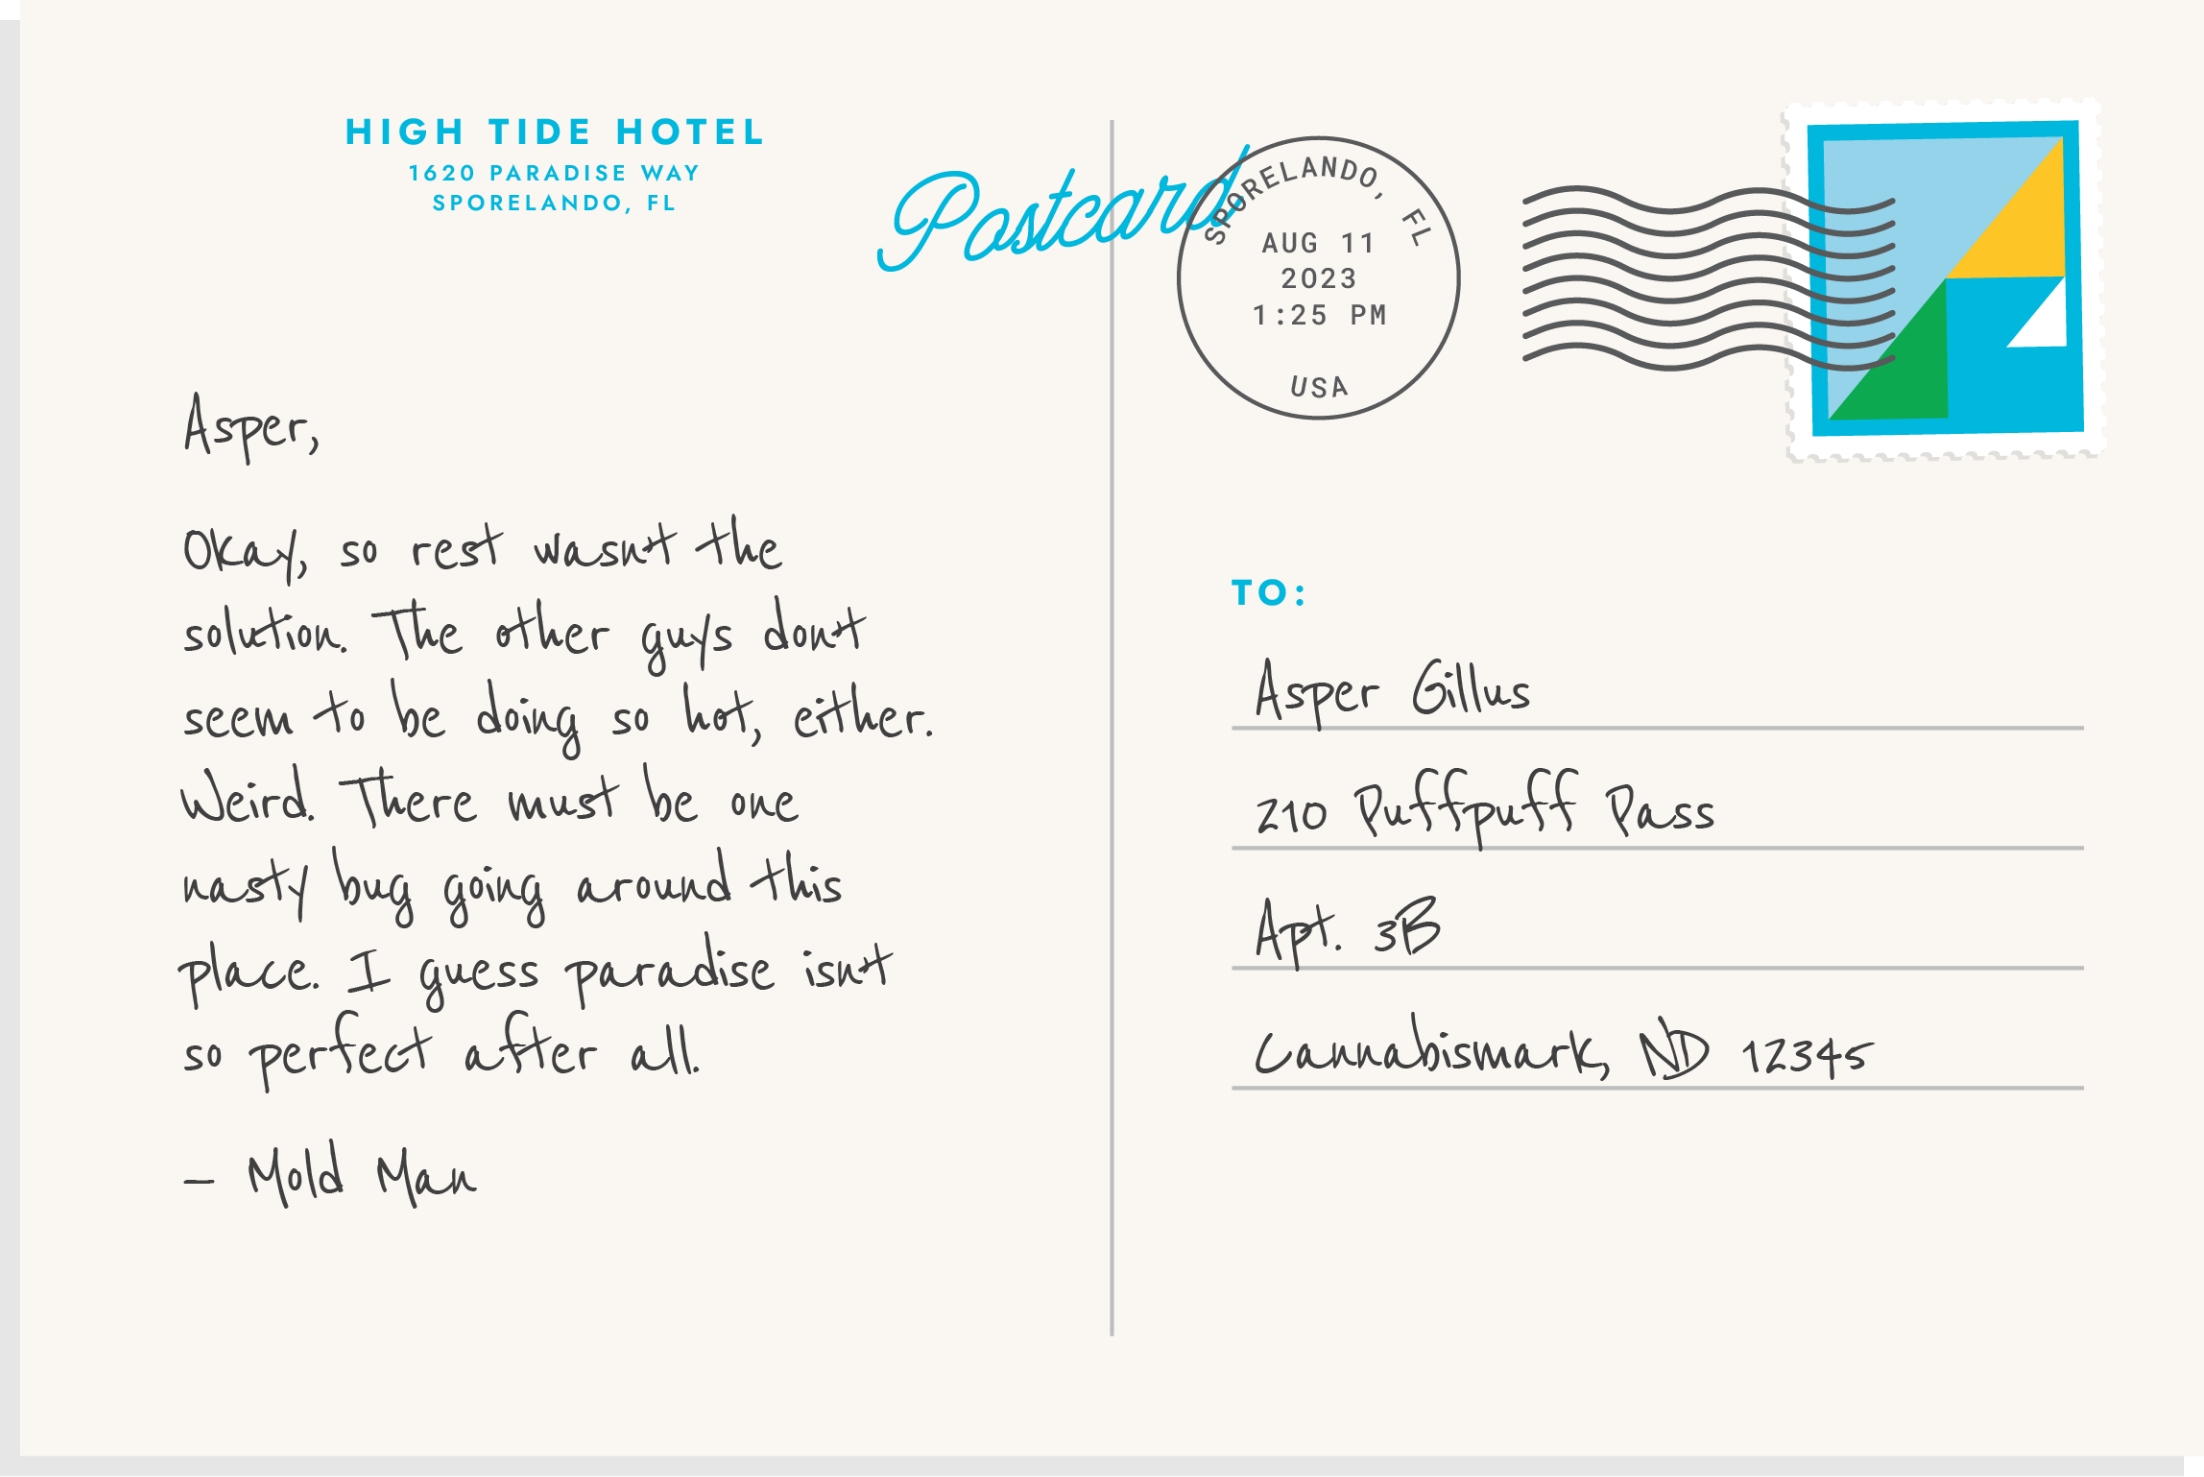 HIGH TIDE HOTEL
1620 PARADISE WAY
SPORELANDO, FL
Postcard
SPORELANDO, FL
AUG 11
2023
1:25 PM
USA
Asper,
Okay, so rest wasn't the
solution. The other guys don't
seem to be doing so hot, either.
Weird. There must be one
nasty bug going around this
place. I guess paradise isn't
so perfect after all.
– Mold Man
TO:
Asper Gillus
210 Puffpuff Pass
Apt. 3B
Cannabismark, ND 12345